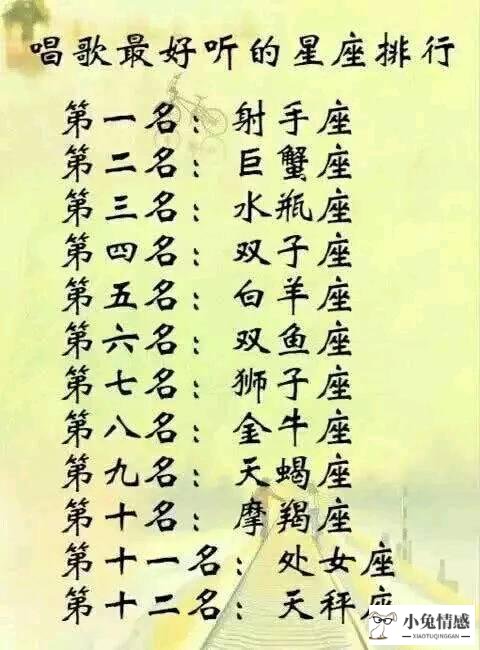 唱歌最好听的星座排行
第一名：射手座
第二名：巨蟹座
第三名：水瓶座
第四名：双子座
第五名：白羊座
第六名：双鱼座
第七名：狮子座
第八名：金牛座
第九名：天蝎座
第十名：摩羯座
第十一名：处女座
第十二名：天秤座
小兔情感
XIAOTUQINGGAN